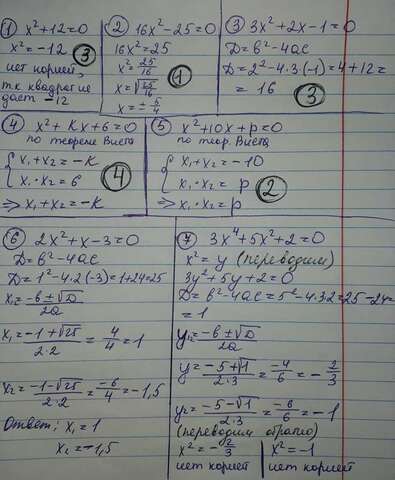 ① x²+12=0
x²=-12 ③
нет корней,
т.к квадрат не
даст -12
② 16x²-25=0
16x²=25
x²=25/16
x=√25/16 ①
x=±5/4
③ 3x²+2x-1=0
D=b²-4ac
D=2²-4·3·(-1)=4+12=
=16 ③
④ x²+Kx+6=0
по теореме Виета
{x₁+x₂=-K
{x₁·x₂=6 ④
⇒x₁+x₂=-K
⑤ x²+10x+p=0
по теор. Виета
{x₁+x₂=-10
{x₁·x₂=p ②
⇒x₁·x₂=p
⑥ 2x²+x-3=0
D=b²-4ac
D=1²-4·2·(-3)=1+24=25
x₁=-b±√D/2a
x₁=-1+√25/2·2=4/4=1
x₂=-1-√25/2·2=-6/4=-1,5
Ответ: x₁=1
x₂=-1,5
⑦ 3x⁴+5x²+2=0
x²=y (переводим)
3y²+5y+2=0
D=b²-4ac=5²-4·3·2=25-24=
=1
y₁,₂=-b±√D/2a
y₁=-5+√1/2·3=-4/6=-2/3
y₂=-5-√1/2·3=-6/6=-1
(переводим обратно)
x²=-2/3
нет корней
x²=-1
нет корней